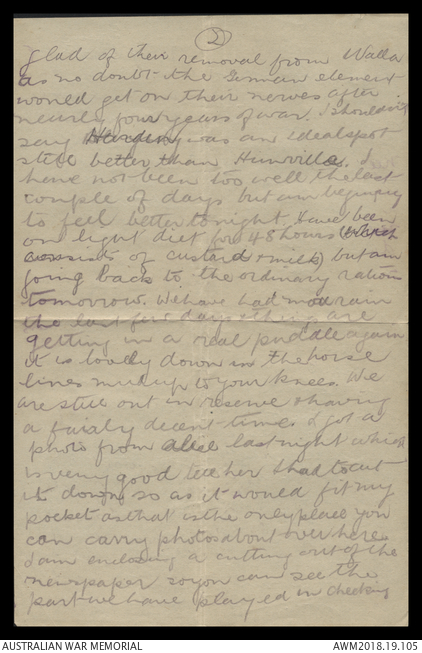 2
glad of their removal from Walla
as no doubt the German element
would get on their nerves after
nearly four years of war. I shouldn't
say was an ideal spot
still better than Hunville. I
have not been too well the last
couple of days but am beginning
to feel better tonight. Have been
on light diet for 48 hours (which
consists of custard & milk) but am
going back to the ordinary ration
tomorrow. We have had more rain
the last few days & things are
getting in a real puddle again
it is lovely down in the horse
lines mud up to your knees. We
are still out in reserve & having
a fairly decent time. I got a
photo from Alice last night which
is very good tell her I had to cut
it down so as it would fit my
pocket as that is the only place you
can carry photos about over here.
I am enclosing a cutting out of the
newspaper so you can see the
part we have played in checking
AUSTRALIAN WAR MEMORIAL
AWM2018.19.105